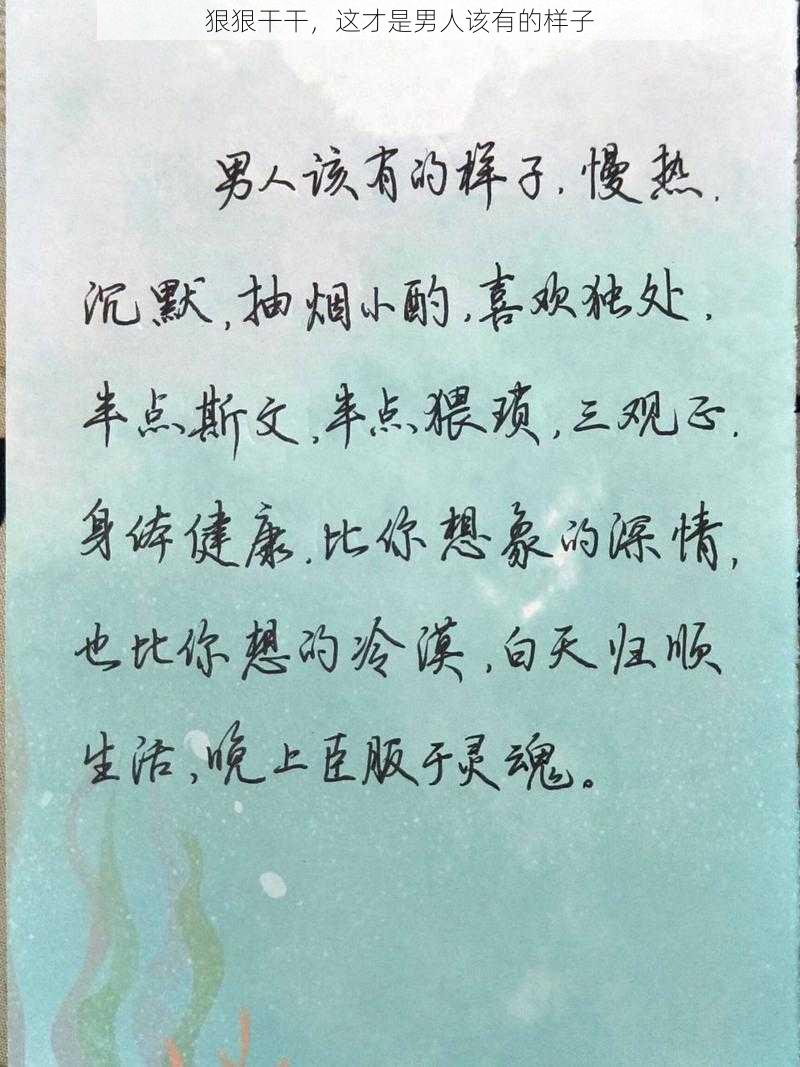 狠狠干干，这才是男人该有的样子
男人该有的样子，慢热，
沉默，抽烟小酌，喜欢独处，
半点斯文，半点猥琐，三观正，
身体健康，比你想象的深情，
也比你想的冷漠，白天归顺
生活，晚上臣服于灵魂。